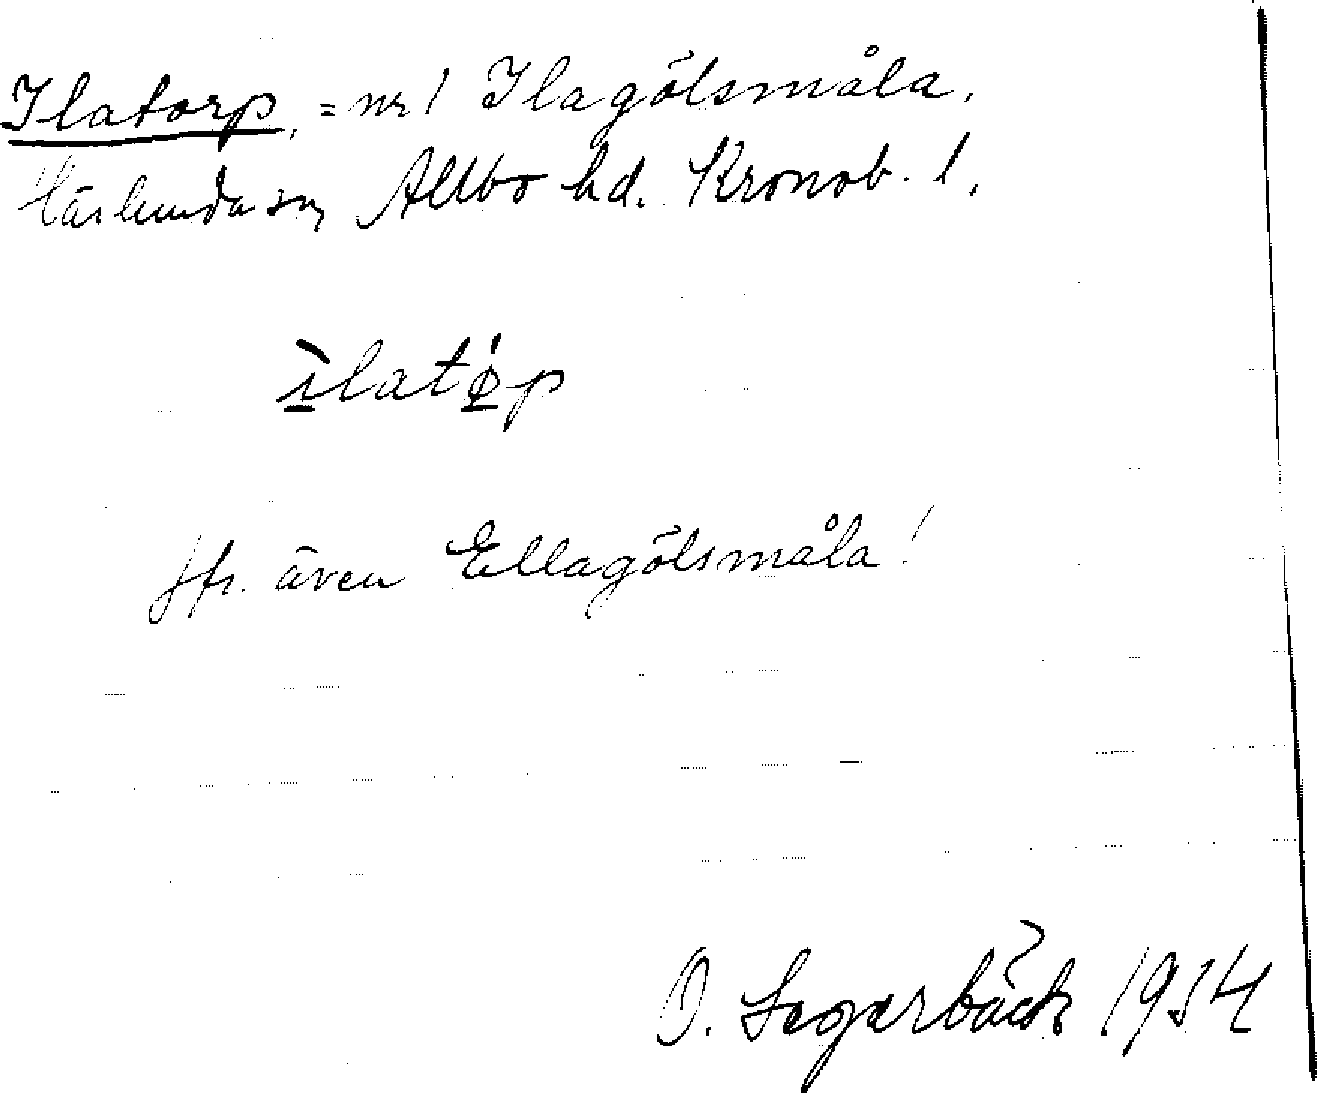 Ilatorp, = nr 1 Ilagölsmåla.
Härlunda sn, Allbo hd. Kronob. l.
ìlatǿp
Jfr. även Ellagölsmåla!
O. Segerbäck 1934